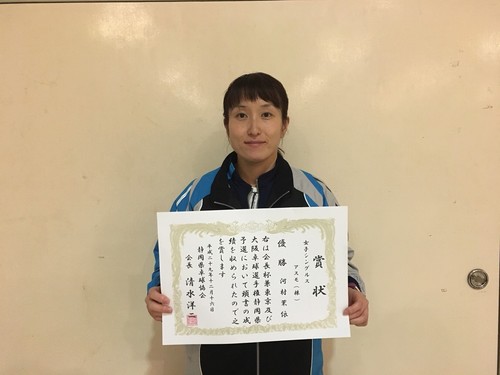 賞状
女子シングルス
アスモ（株）
優勝 河村茉依
右は会長杯兼東京及び
大阪卓球選手権静岡県
予選において頭書の成
績を収められたので之
を賞します
平成二十九年十二月十六日
静岡県卓球協会
会長 清水洋二